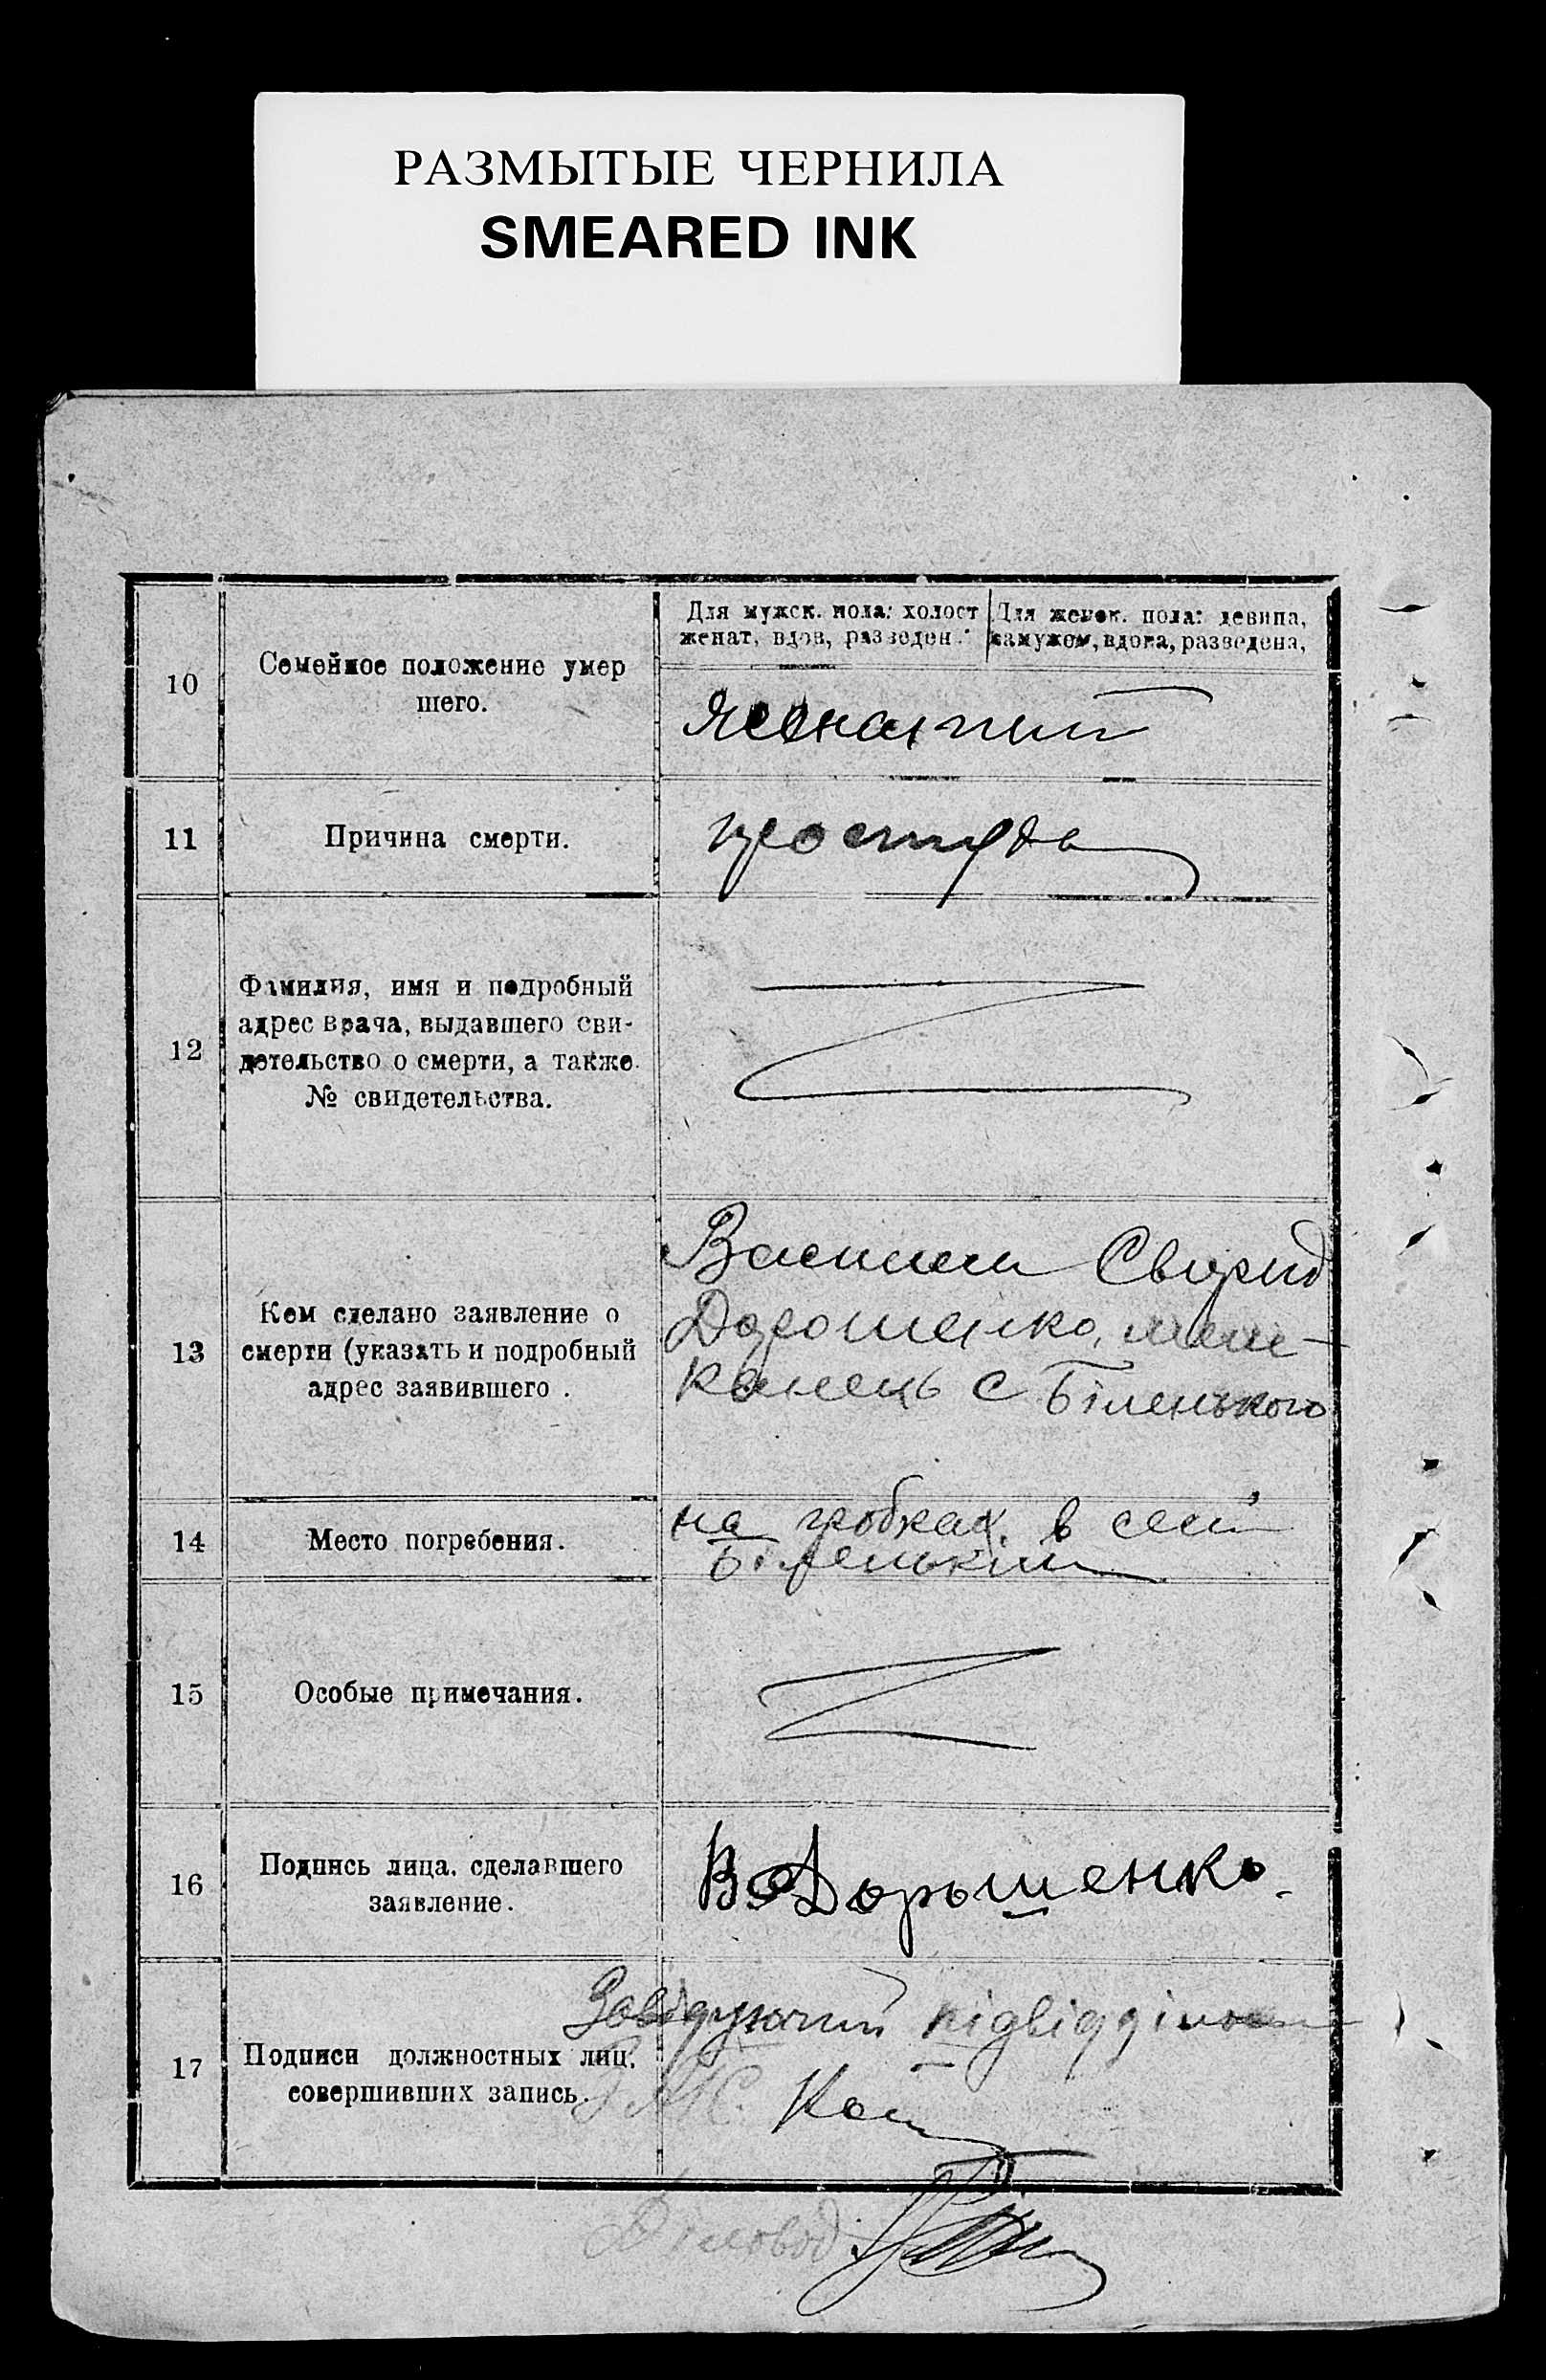 РАЗМЫТЫЕ ЧЕРНИЛА
SMEARED INK
10
Семейное положение умер
шего.
Для мужск. пола: холост
женат, вдов, разведен.
Для женск. пола: девица,
замужем, вдова, разведена,
жонатий
11
Причина смерти.
простуда
12
Фамилия, имя и подробный
адрес врача, выдавшего сви-
детельство о смерти, а также
№ свидетельства.
13
Кем сделано заявление о
смерти (указать и подробный
адрес заявившего .
Василем Свирид
Дорошенко, меш-
канець с Біленького
14
Место погребения.
на гробках в селі
Біленькім
15
Особые примечания.
16
Подпись лица, сделавшего
заявление.
В Дорошенко
17
Подписи должностных лиц,
совершивших запись.
Завідуючий підвідділом
Діловод